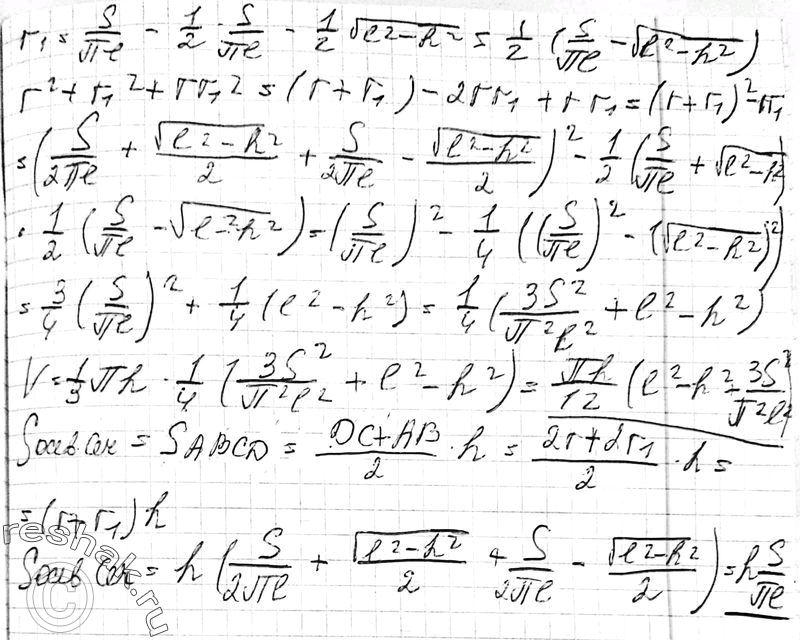 r₁ = S/πl - 1/2 · S/πl - 1/2 √(l²-h²) = 1/2 (S/πl - √(l²-h²))
r² + r₁² + rr₁² = (r+r₁) - 2rr₁ + rr₁ = (r+r₁)² - rr₁
= (S/2πl + √(l²-h²)/2 + S/2πl - √(l²-h²)/2)² - 1/2 (S/πl + √(l²-h²)
· 1/2 (S/πl - √(l-²h²)) = (S/πl)² - 1/4 ((S/πl)² - (√(l²-h²))²)
= 3/4 (S/πl)² + 1/4 (l²-h²) = 1/4 (3S²/π²l² + l² - h²)
V = 1/3 πh · 1/4 (3S²/π²l² + l² - h²) = πh/12 (l² - h² - 3S²/π²l²)
Sосев сеч = S ABCD = (DC+AB)/2 · h = (2r+2r₁)/2 · h =
= (r+r₁) h
Sосев сеч = h (S/2πl + √(l²-h²)/2 + S/2πl - √(l²-h²)/2) = h S/πl
reshak.ru